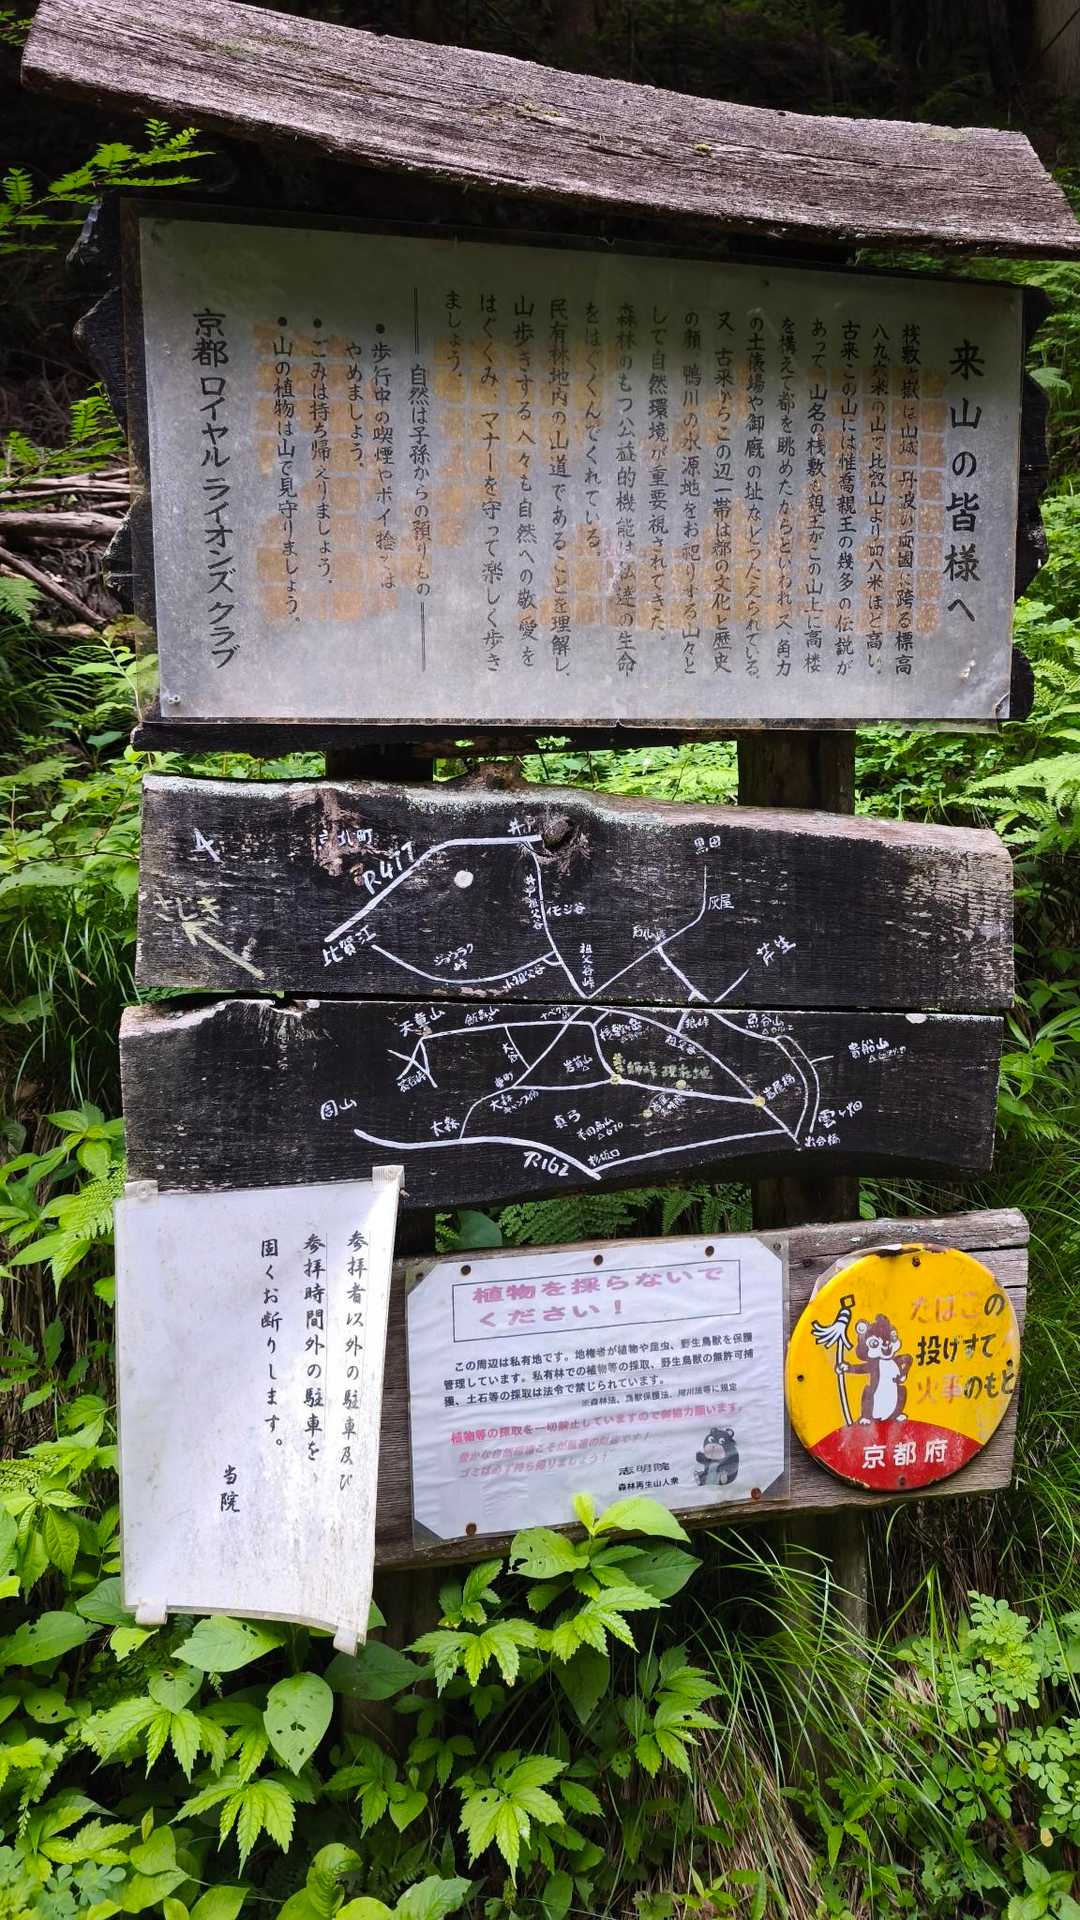 来山の皆様へ
桟敷ヶ嶽は山城、丹波の両國に跨る標高
八九六米の山で比叡山より四八米ほど高い。
古来この山には惟喬親王の幾多の伝説が
あって、山名の桟敷も親王がこの山上に高楼
を構えて都を眺めたからといわれ、又、角力
の土俵場や御厩の址などつたえられている。
又、古来からこの辺一帯は都の文化と歴史
の顔、鴨川の水源地をお祀りする山々と
して自然環境が重要視されてきた。
森林のもつ公益的機能は私達の生命
をはぐくんでくれている。
民有林地内の山道であることを理解し、
山歩きする人々も自然への敬愛を
はぐくみ、マナーを守って楽しく歩き
ましょう。
自然は子孫からの預りもの
●歩行中の喫煙やポイ捨ては
やめましょう。
●ごみは持ち帰えりましょう。
●山の植物は山で見守りましょう。
京都ロイヤルライオンズクラブ
4
北町
井戸
R477
黒田
さじき
井戸祖父谷
イモジ谷
灰屋
比賀江
ジョウラク峠
小祖父谷
祖父谷峠
石仏峠
芹生
天童山
飯森山
ナベクロ峠
魚谷山
貴船山
祖父谷
大谷
岩茸山
薬師峠 現在地
茶呑峠
大森キャンプ場
岩屋橋
周山
大森
真弓
雲ヶ畑
出合橋
杉坂口
R162
参拝者以外の駐車及び
参拝時間外の駐車を
固くお断りします。
当院
植物を採らないで
ください！
この周辺は私有地です。地権者が植物や昆虫、野生鳥獣を保護
管理しています。私有林での植物等の採取、野生鳥獣の無許可捕
獲、土石等の採取は法令で禁じられています。
※森林法、鳥獣保護法、河川法等に規定
植物等の採取を一切禁止していますので御協力願います。
豊かな自然環境こそが最高の財産です！
ゴミは必ず持ち帰りましょう！
志明院
森林再生山人衆
たばこの
投げすて
火事のもと
京都府